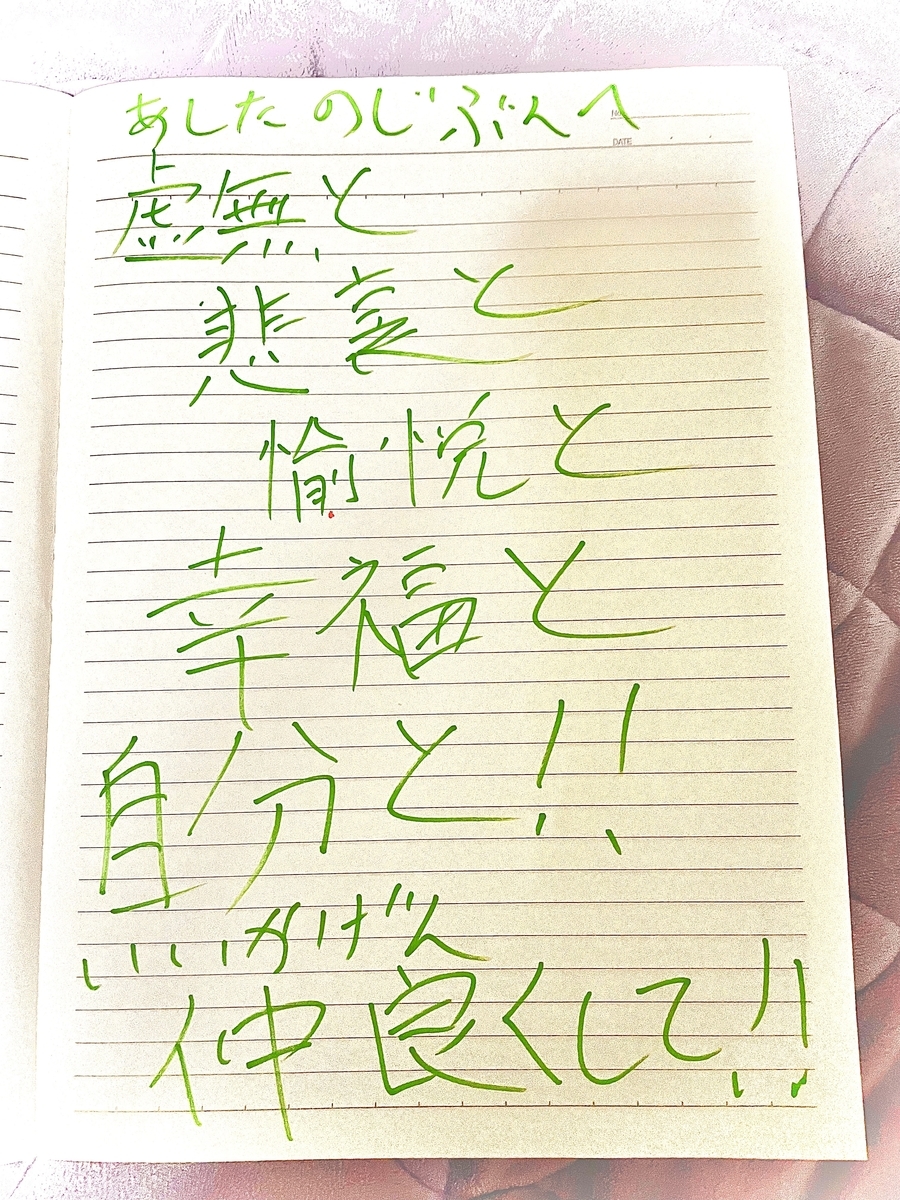 あしたのじぶんへ
No.
DATE
虚無と
悲哀と
愉悦と
幸福と
自分と!!
いいかげん
仲良くして!!